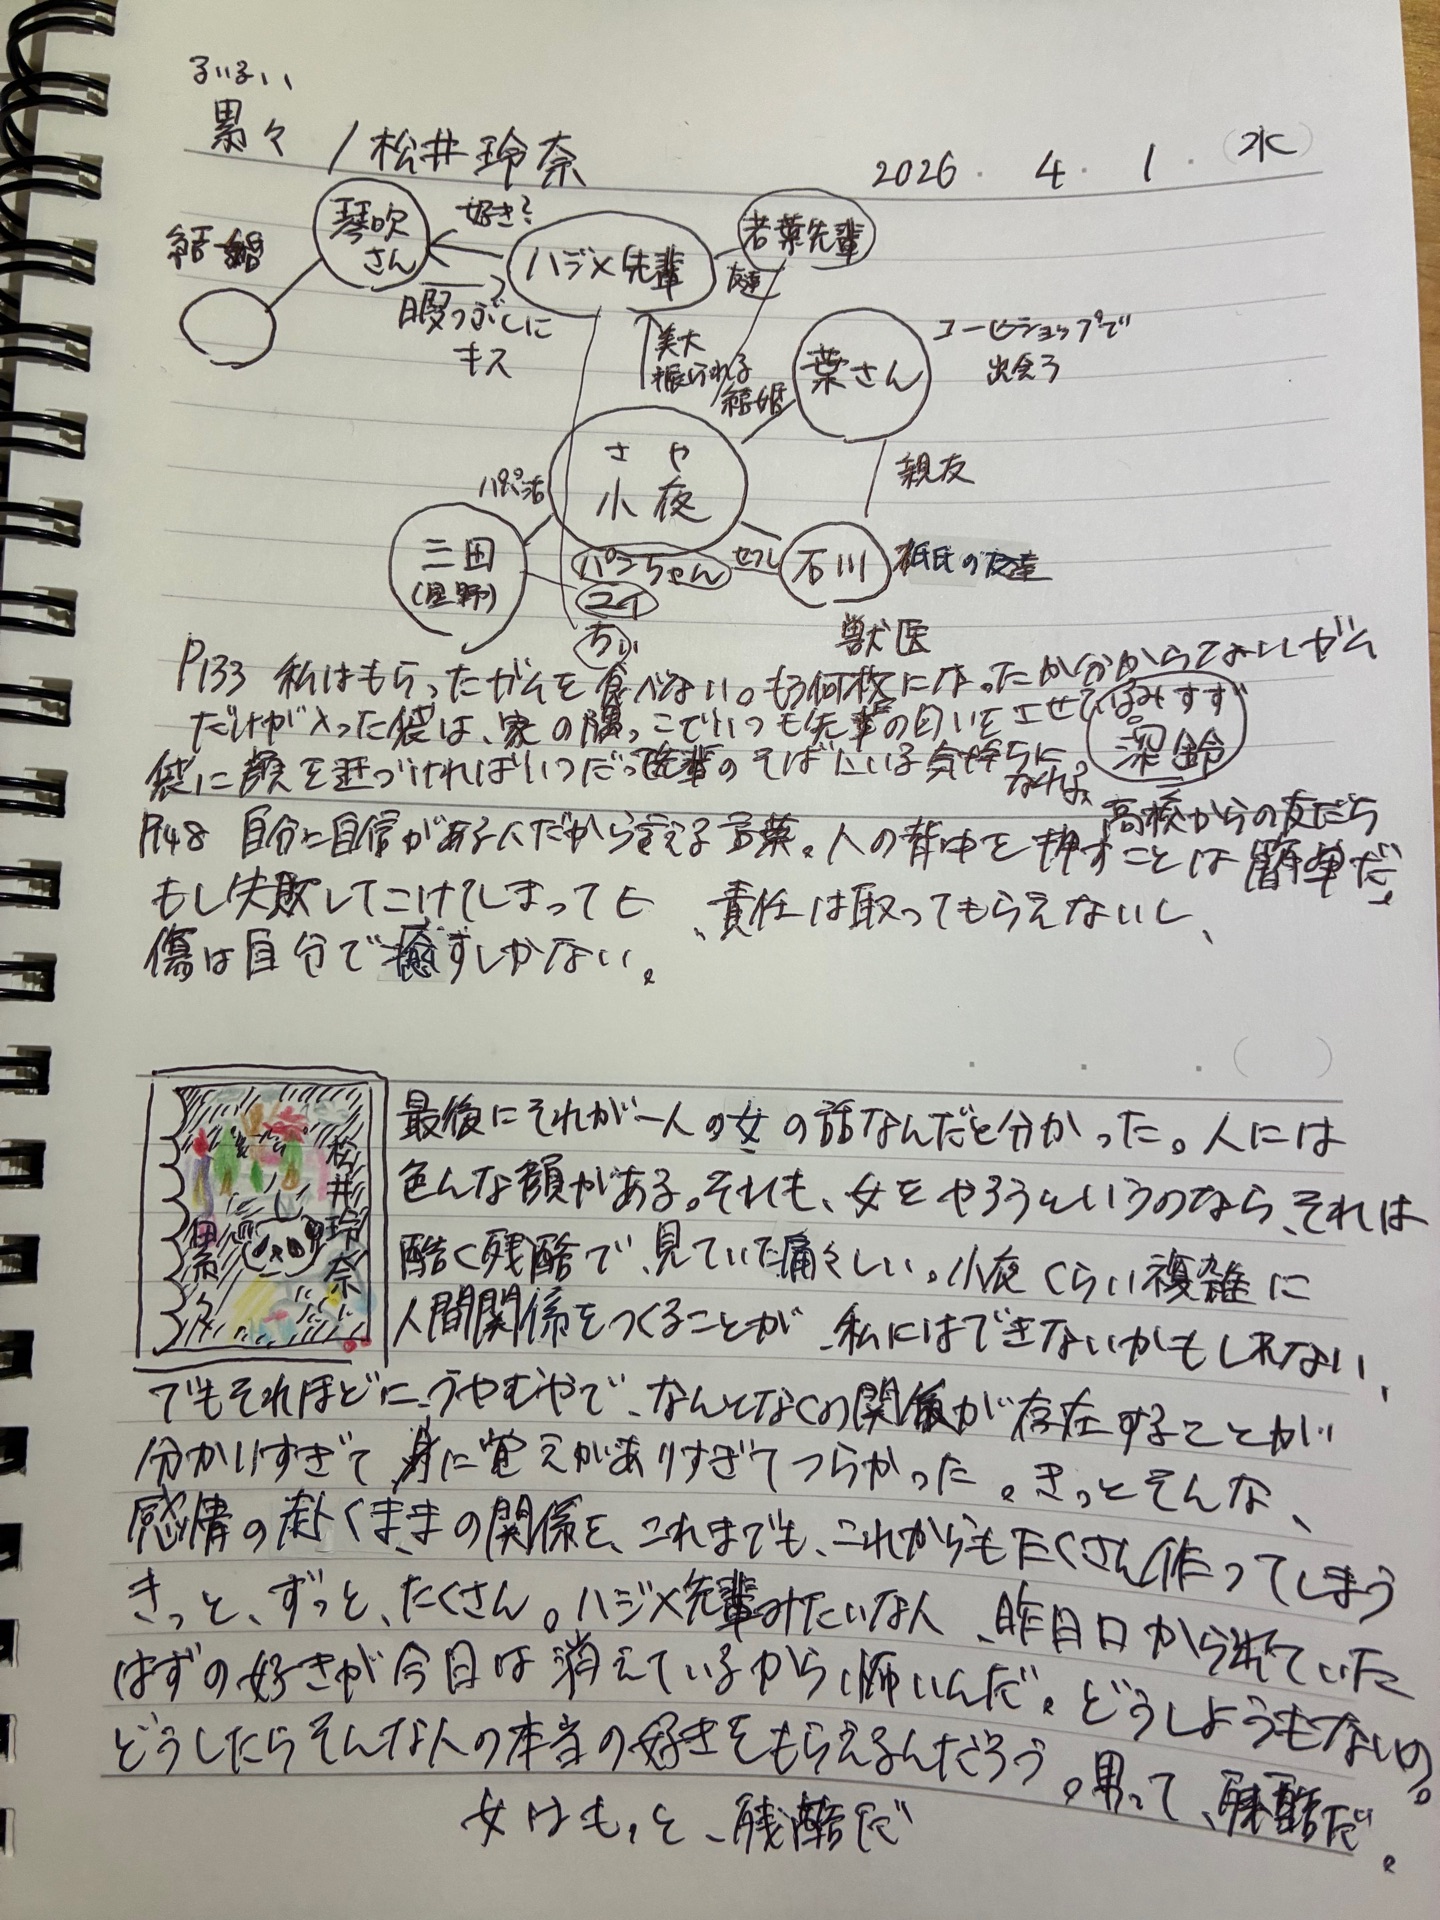 るいるい
累々 / 松井玲奈 2026・4・1・(水)
結婚 琴吹さん 好き? ハジメ先輩 友達 若葉先輩
暇つぶしにキス
美大 振られる
結婚 葉さん コーヒショップで出会う
さや
小夜
親友
パパ活
三田
(星野)
パンちゃん セフレ 石川 祇氏の友達
ユイ
ちぃ
獣医
P133 私はもらったガムを食べない。もう何枚になったか分からないガム
だけが入った袋は、家の隅っこでいつも先輩の匂いをさせている
袋に顔を近づければいつだって先輩のそばにいる気持ちになれる
みすず
深鈴
高校からの友だち
P148 自分に自信がある人だから言える言葉。人の背中を押すことは簡単だ。
もし失敗してこけてしまっても、責任は取ってもらえないし、
傷は自分で癒すしかない。
松井玲奈
累々
最後にそれが一人の女の話なんだと分かった。人には
色んな顔がある。それも、女をやろうというのなら、それは
酷く残酷で、見ていた痛々しい。小夜くらい複雑に
人間関係をつくることが、私にはできないかもしれない、
でもそれほどに、うやむやで、なんとなくの関係が存在することが
分かりすぎて身に覚えがありすぎてつらかった。きっとそんな、
感情の赴くままの関係を、これまでも、これからもたくさん作ってしまう
きっと、ずっと、たくさん。ハジメ先輩みたいな人、昨日口から出ていた
はずの好きが今日は消えているから怖いんだ。どうしようもないの。
どうしたらそんな人の本当の好きをもらえるんだろう。男って、残酷だ。
女はもっと、残酷だ